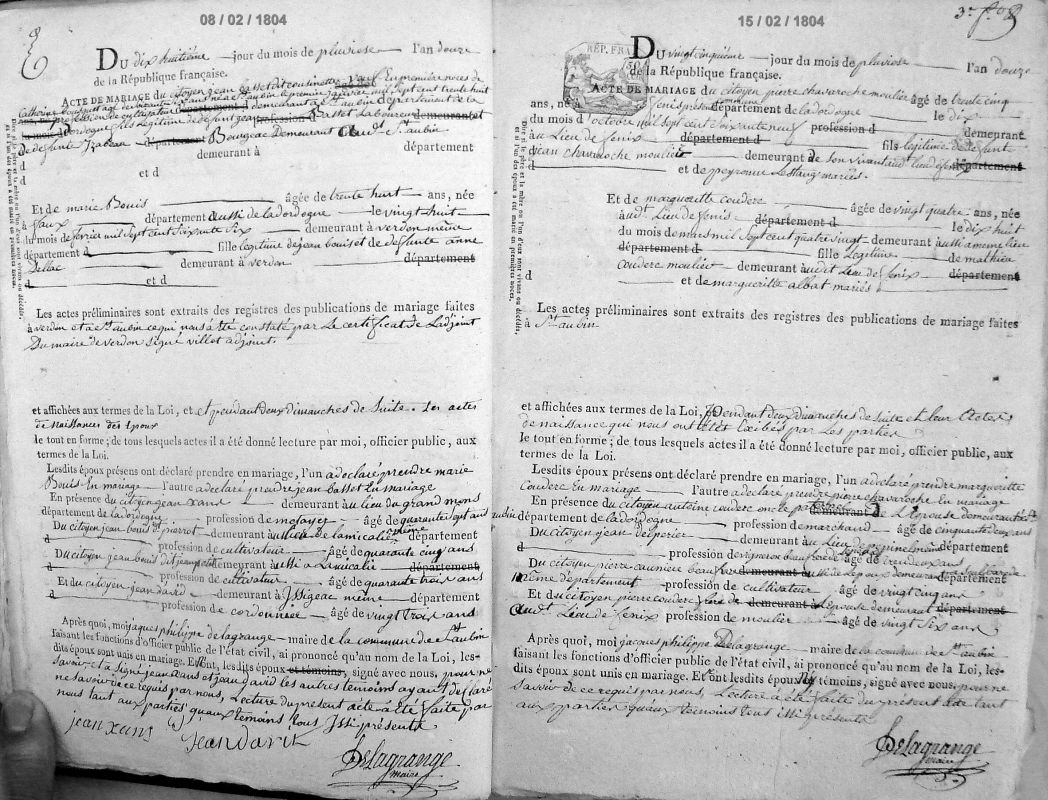 08 / 02 / 1804
Du dix huitième jour du mois de pluviose l'an douze
de la République française.
Acte de mariage du citoyen jean
profession de cultivateur département d demeurant à St aubin département de la
dordogne fils Légitime de defunt jean profession d Basset Laboureur demeurant et
de defunte Izabeau département Bougeac Demeurant audt St aubin
d demeurant à département
d et d
Et de marie Bouis âgée de trente huit ans, née
à faux département aussi de La dordogne le vingt huit
du mois de fevrier mil sept cent soixante six demeurant à verdon meme
département d fille legitime de jean bouis et de defunte anne
Dellac demeurant à verdon département
d et d
Les actes préliminaires sont extraits des registres des publications de mariage faites
à verdon et a St aubin ce qui nous à été constaté par Le certificat de Ladjoint
Du maire de verdon signé villot adjoint.
et affichées aux termes de la Loi, et et pendant deux dimanches de suite. Les actes
de naissances des Epoux
le tout en forme; de tous lesquels actes il a été donné lecture par moi, officier public, aux
termes de la Loi.
Lesdits époux présens ont déclaré prendre en mariage, l'un a declaré prendre marie
Bouis en mariage l'autre a declaré prendre jean Basset En mariage
En présence du citoyen jean xans demeurant au lieu de grand mons
département de la dordogne profession de metayer âgé de quarante sept ans
Du citoyen jean bouis dt pierrot demeurant au lieu de lamicalie même département
d profession de cultivateur âgé de quarante cinq ans
Du citoyen jean bouis dit demeurant aussi a Lamicalie département
d profession de cultivateur âgé de quarante trois ans
Et du citoyen jean david demeurant à Issigeac même département
d profession de cordonnier âgé de vingt trois ans
Après quoi, moi jaques philippe delagrange maire de la commune de St aubin
faisant les fonctions d'officier public de l'état civil, ai prononcé qu'au nom de la Loi, les-
dits époux sont unis en mariage. Et ont, lesdits époux et témoins, signé avec nous, pour ne
savoir et a signé jean xans et jean david les autres temoins ayant declaré
ne savoir de ce requis par nous, Lecture du present acte a été faite par
nous tant aux parties quaux temoins tous Issi présents
jean xans jean davit
Delagrange
maire
15 / 02 / 1804
3e
RÉP. FRA
Du vingt cinquième jour du mois de pluviose l'an douze
de la République française.
Acte de mariage du citoyen pierre chavaroche moulier âgé de trente cinq
ans, né à fenis présente commune département de la dordogne le dix
du mois d'octobre mil sept cent soixante neuf profession d demeurant
au Lieu de fenix département d fils legitime de defunt
jean chavaroche moulier demeurant de son vivant audt Lieu de fenix département
d et de peyronne Lestang mariés.
Et de margueritte couderc âgée de vingt quatre ans, née
à audt Lieu de fenis département d le dix huit
du mois de mars mil sept cent quatre vingt demeurant à aussi a meme lieu
département d fille Légitime de mathieu
couderc moulier demeurant audit Lieu de fenix département
d et de margueritte albat mariés
Les actes préliminaires sont extraits des registres des publications de mariage faites
à St aubin
et affichées aux termes de la Loi, Pendant deux dimanches de suite et leur Actes
de naissance qui nous ont été Exibés par Les parties
le tout en forme; de tous lesquels actes il a été donné lecture par moi, officier public, aux
termes de la Loi.
Lesdits époux présens ont déclaré prendre en mariage, l'un a declaré prendre margueritte
couderc En mariage l'autre a declaré prendre pierre chavaroche En mariage
En présence du citoyen antoine couderc oncle demeurant à de L'épouse demeurant
aubin département de la dordogne profession de marchand âgé de cinquante deux ans
Du citoyen jean desperier demeurant au Lieu département
d profession de vigneron âgé de trente deux ans
Du citoyen pierre demeurant aussi département
même département profession de cultivateur âgé de vingt cinq ans
Et du citoyen pierre couderc frère de demeurant à L'épouse demeurant département
audt Lieu de fenix profession de moulier âgé de vingt six ans
Après quoi, moi jacques philippe Delagrange maire de la commune de St aubin
faisant les fonctions d'officier public de l'état civil, ai prononcé qu'au nom de la Loi, les-
dits époux sont unis en mariage. Et ont lesdits époux Ny témoins, signé avec nous, pour ne
savoir de ce requis par nous, Lecture à été faite du présent acte tant
aux parties quaux temoins tous issi présents
Delagrange
maire